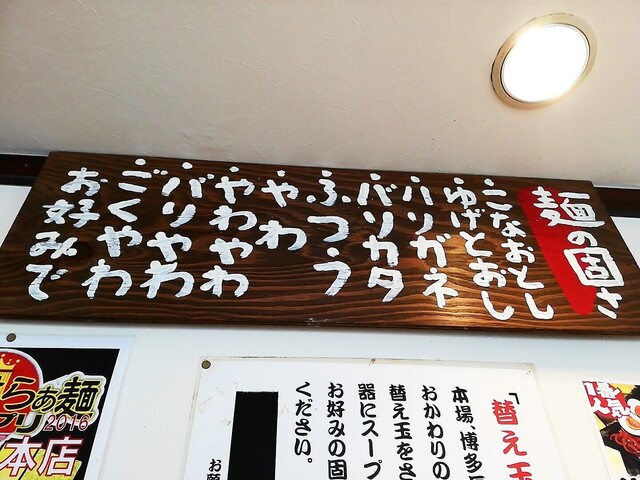 麺の固さ
・こなおとし
・ゆげとおし
・ハリガネ
・バリカタ
・ふつう
・やわ
・やわやわ
・バリやわ
・ごくやわ
・お好みで
らぁ麺
リ2016
本店
「替え玉
本場、博多
おかわりの
替え玉をさ
器にスープ
お好みの固
ください。
お願
人気